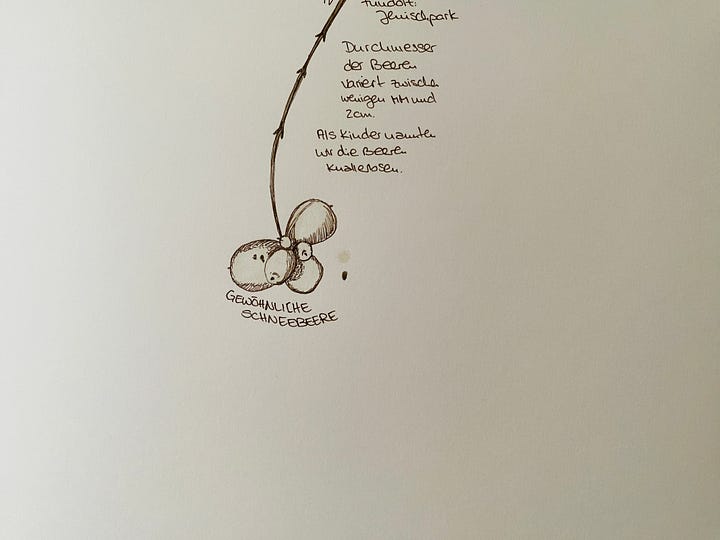 Fundort:
Jenischpark
Durchmesser
der Beeren
variiert zwischen
wenigen MM und
2cm.
Als Kinder nannten
wir die Beeren
Knallerbsen.
GEWÖHNLICHE
SCHNEEBEERE